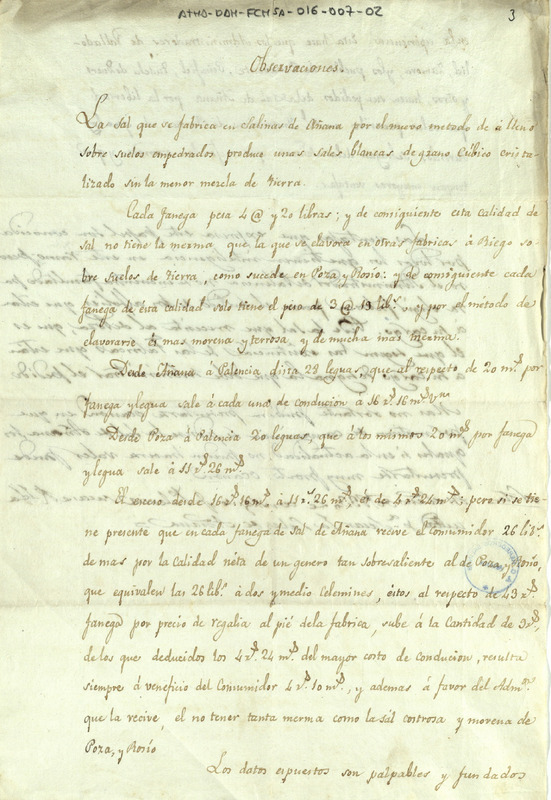 ATHA-DAH-FCHSA-016-007-02
3
Observaciones.
La Sal que se fabrica en Salinas de Añana por el nuevo metodo de á lleno
sobre suelos empedrados produce unas sales blancas de grano Cúbico crista-
lizado sin la menor mezcla de tierra.
Cada fanega pesa 4 @ y 20 libras; y de consiguiente esta calidad de
sal no tiene la merma que la que se elavora en otras fabricas á Riego so-
bre suelos de tierra, como sucede en Poza y Rosio: y de consiguiente cada
fanega de esta calidad solo tiene el peso de 3 @ 19 lib.s, y por el metodo de
elavorarse és mas morena y terrosa, y de mucha mas merma.
Desde Añana á Palencia dista 28 leguas, que al respecto de 20 mrs por
fanega y legua sale á cada una de conducion á 16 rs 16 ms vn
Desde Poza á Palencia 20 leguas, que á los mismos 20 mrs por fanega
y legua sale á 11 rs 26 ms
El exceso desde 16 rs 16 ms á 11 rs 26 ms és de 4 rs 24 ms: pero si se tie-
ne presente que en cada fanega de Sal de Añana recive el Consumidor 26 lib.s
de mas por la Calidad néta de un genero tan sobresaliente al de Poza y Rosío,
que equivalen las 26 lib.s á dos y medio Celemines, éstos al respecto de 43 rs
fanega por precio de regalia al pié de la fabrica, sube á la Cantidad de
de los que deducidos los 4 rs 24 ms del mayor costo de conducion, resulta
siempre á veneficio del Consumidor 4 rs 10 ms, y ademas á favor del Admor
que la recive, el no tener tanta merma como la sál costrosa y morena de
Poza, y Rosío
Los datos espuestos son palpables y fundados